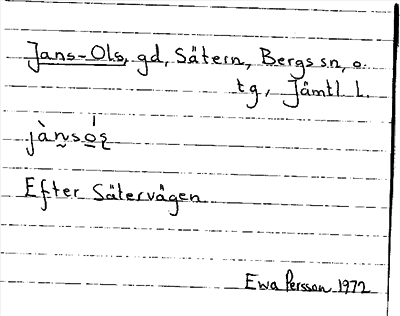 Jans-Ols, gd, Sätern, Bergs sn, o.
tg, Jämtl l.
jàn̰so̱ʹs̨
Efter Sätervägen
Ewa Persson 1972